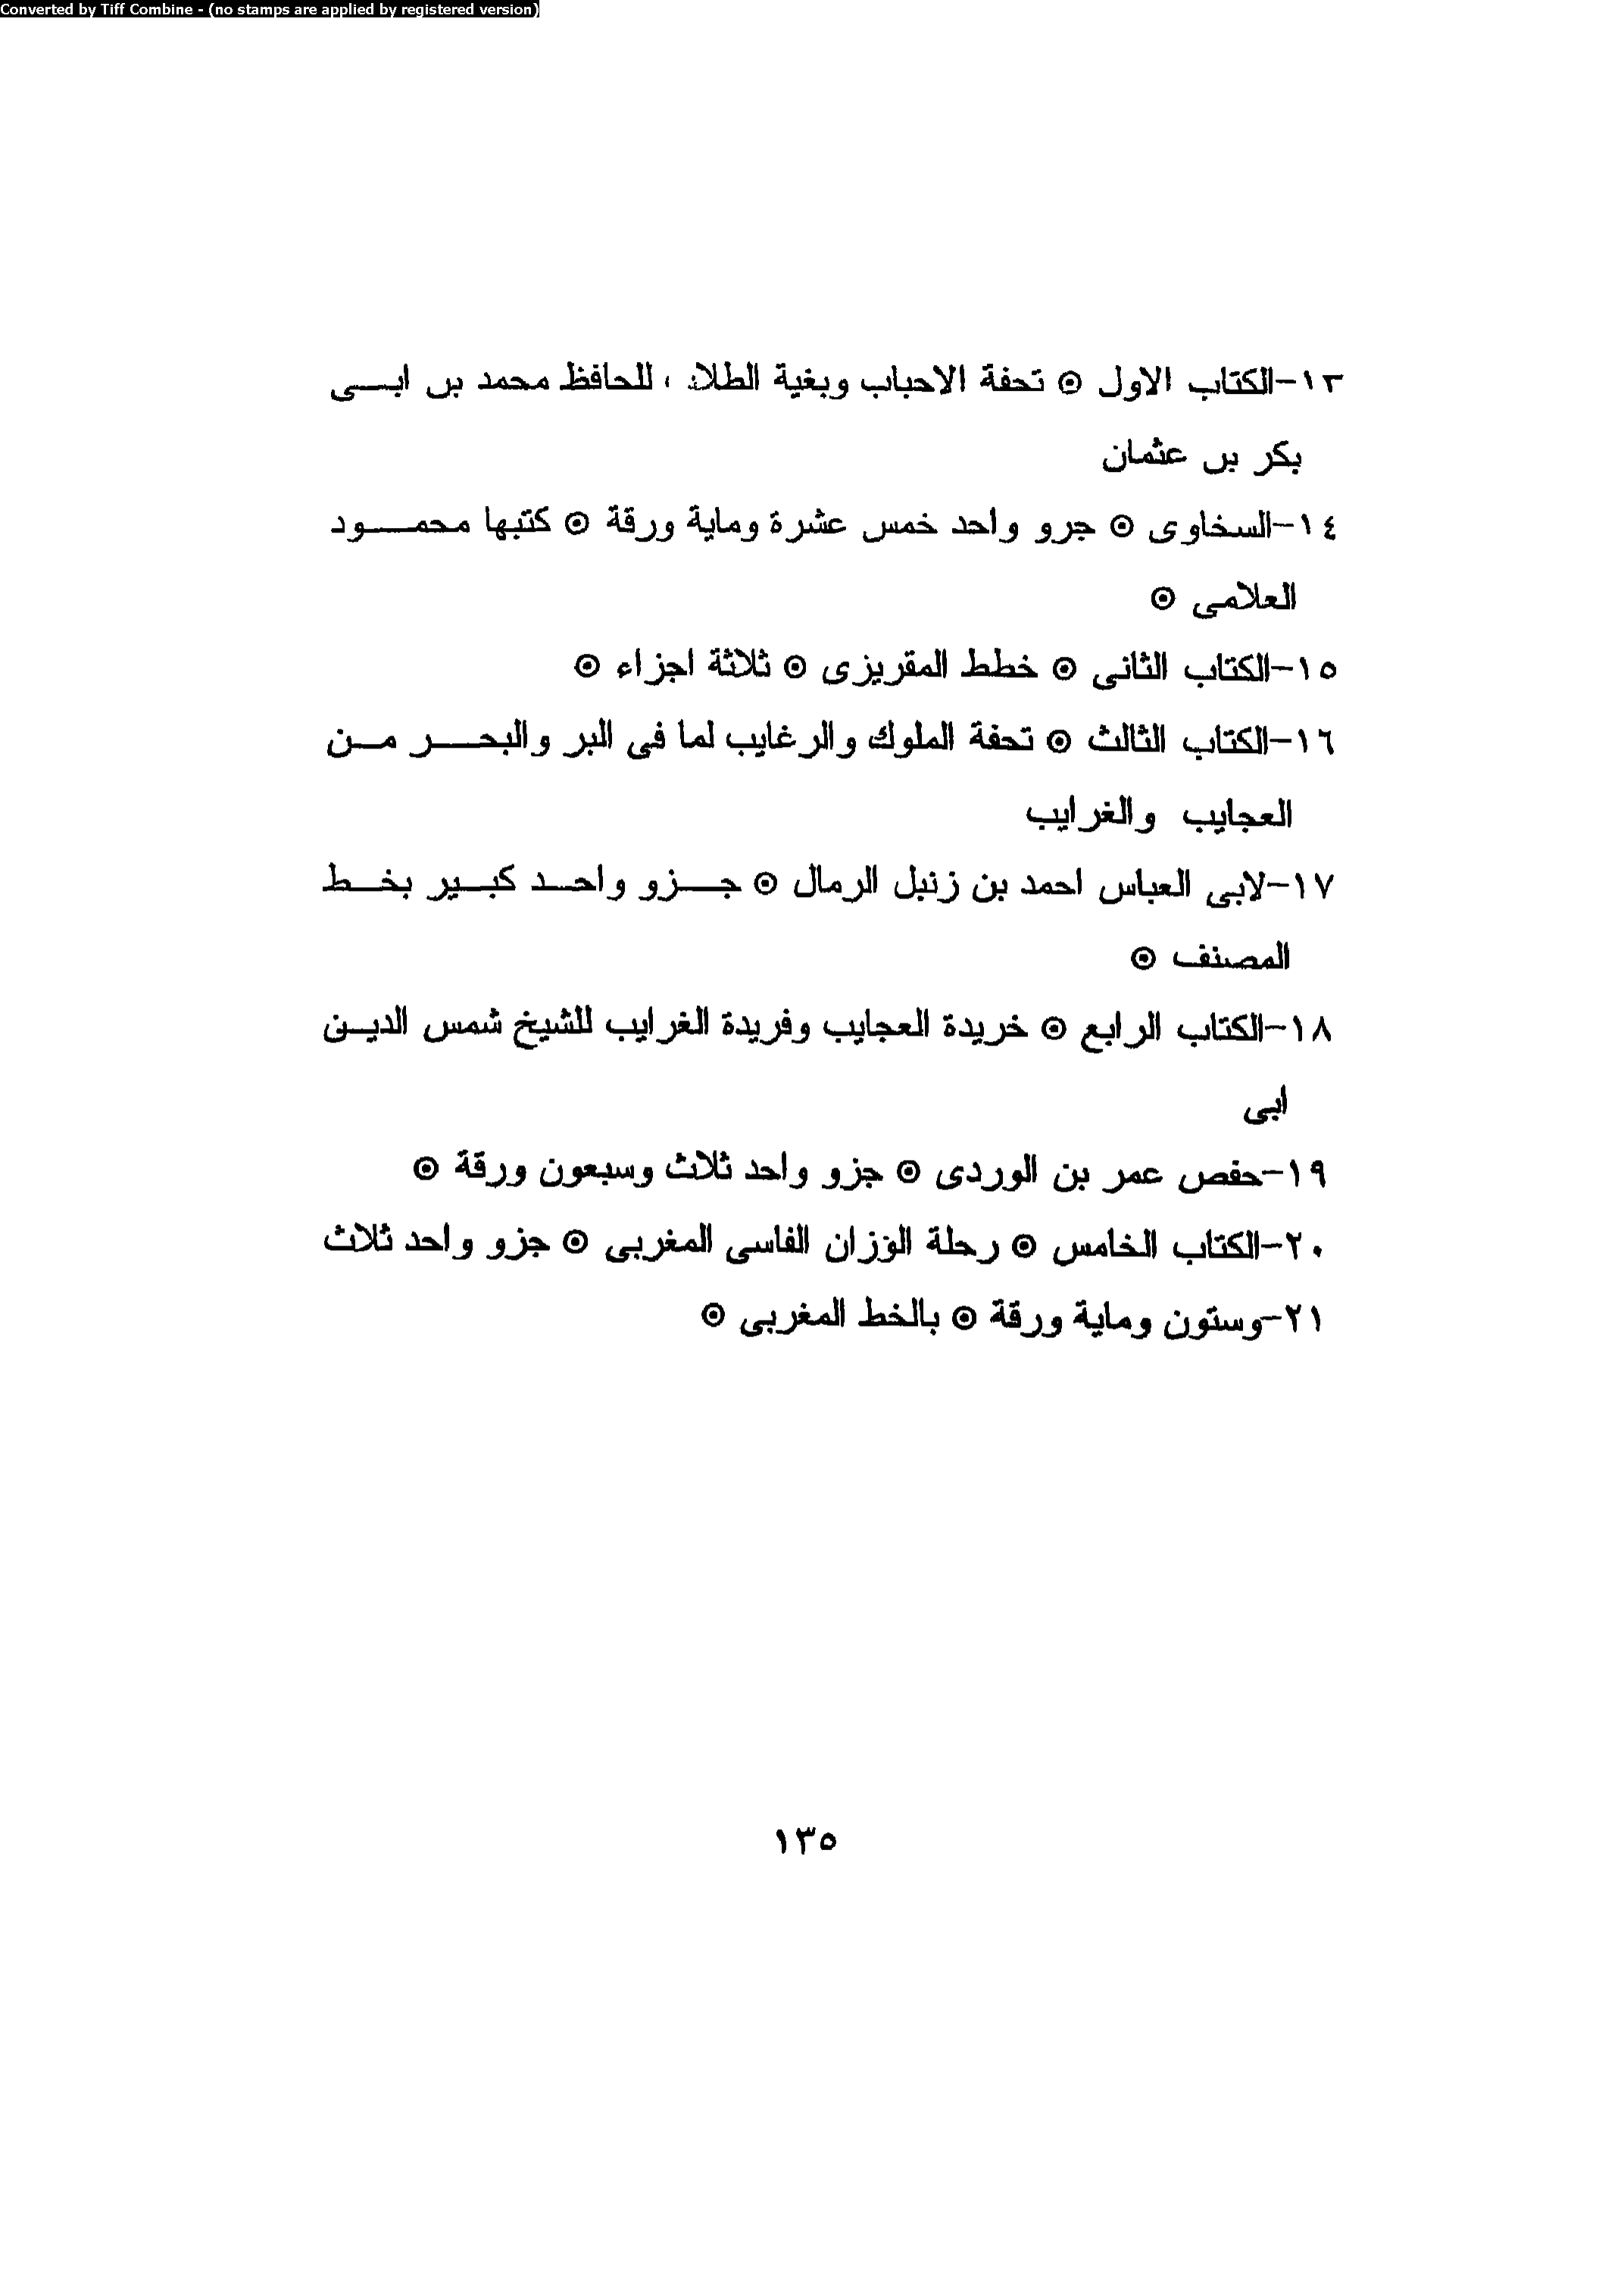 Converted by Tiff Combine - (no stamps are applied by registered version)
١٣-الكتاب الاول ⊙ تحفة الاحباب وبغية ، للحافظ محمد بن ابـــى
بكر بن عثمان
١٤-السخاوى ⊙ جرو واحد خمس عشرة وماية ورقة ⊙ كتبها محمـــود
العلامى ⊙
١٥-الكتاب الثانى ⊙ خطط المقريزى ⊙ ثلاثة اجزاء ⊙
١٦-الكتاب الثالث ⊙ تحفة الملوك والرغايب لما فى البر والبحـــر مــن
العجايب والغرايب
١٧-لابى العباس احمد بن زنبل الرمال ⊙ جـــزو واحــد كبــير بخــط
المصنف ⊙
١٨-الكتاب الرابع ⊙ خريدة العجايب وفريدة الغرايب للشيخ شمس الديــن
ابى
١٩-حفص عمر بن الوردى ⊙ جزو واحد ثلاث وسبعون ورقة ⊙
٢٠-الكتاب الخامس ⊙ رحلة الوزان الفاسى المغربى ⊙ جزو واحد ثلاث
٢١-وستون وماية ورقة ⊙ بالخط المغربى ⊙
١٣٥